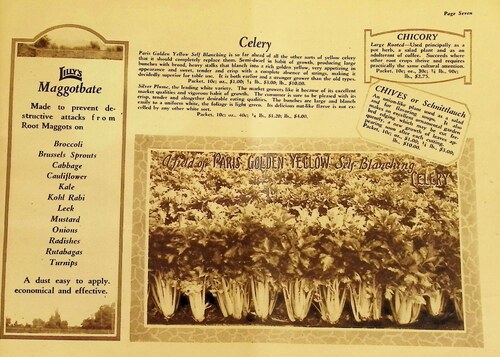 Page Seven
LILLY'S
Maggotbate
Made to prevent de-
structive attacks from
Root Maggots on
Broccoli
Brussels Sprouts
Cabbage
Cauliflower
Kale
Kohl Rabi
Leek
Mustard
Onions
Radishes
Rutabagas
Turnips
A dust easy to apply.
economical and effective.
Celery
Paris Golden Yellow Self Blanching is so far ahead of all the other sorts of yellow celery
that it should completely replace them. Semi-dwarf in habit of growth, producing large
bunches with broad, heavy stalks that blanch into a rich golden yellow, very appetizing in
appearance and sweet, tender and crisp with a complete absence of strings, making it
decidedly superior for table use. It is both earlier and a stronger grower than the old types.
Packet, 10c; oz.
Silver Plume, the leading white variety. The market growers like it because of its excellent
market qualities and vigorous habit of growth. The consumer is sure to be pleased with its
crisp, tender and altogether desirable eating qualities. The bunches are large and blanch
easily to a uniform white, the foliage is light green. Its delicious nut-like flavor is not ex-
celled by any other white sort.
Packet, 10c; oz., 40c; ¼ lb., $1.20; lb., $4.00.
CHICORY
Large Rooted—Used principally as a
pot herb, a salad plant and as an
adulterant of coffee. Succeeds where
other root crops thrive and requires
practically the same cultural attention.
Packet, 10c; oz., 30c; ¼ lb., 90c;
lb., $2.75.
CHIVES or Schnittlauch
An onion-like plant used as a salad
and for flavoring. Small garden
beds or
A field of PARIS GOLDEN YELLOW Self-Blanching
CELERY